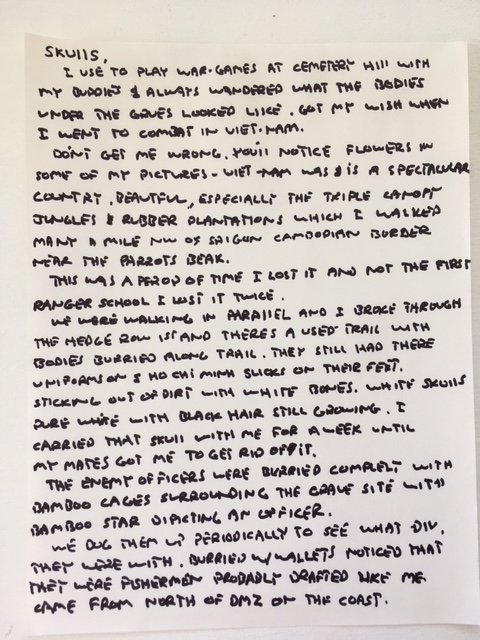 SKUllS,
I USE TO PLAY WAR-GAMES AT CEMETERY HIll WITH
MY BUDDIES & ALWAYS WANDERED WHAT THE BODIES
UNDER THE GRVES LOOKED LIKE. GOT MY WISH WHEN
I WENT TO COMBAT IN VIET-NAM.
DON'T GET ME WRONG. YOU'll NOTICE FLOWERS IN
SOME OF MY PICTURES - VIET-NAM WAS & IS A SPECTACULAR
COUNTRY, BEAUTFUL, ESPECIALLY THE TRIPLE CANOPY
JUNGLES & RUBBER PLANTATIONS WHICH I WALKED
MANY A MILE NW OF SAIGON CAMBODIAN BORDER
NEAR THE PARROTS BEAK.
THIS WAS A PEROD OF TIME I LOST IT AND NOT THE FIRST
RANGER SCHOOL I LOST IT TWICE.
WE WERE WALKING IN PARAllEL AND I BROKE THROUGH
THE HEDGE ROW 1ST AND THERE'S A USED TRAIL WITH
BODIES BURRIED ALONG TRAIL. THEY STILL HAD THERE
UNIFORMS ON & HO CHI MINH SLICKS ON THEIR FEET.
STICKING OUT OF DIRT WITH WHITE BONES. WHITE SKUllS
PURE WHITE WITH BLACK HAIR STILL GROWING. I
CARRIED THAT SKUll WITH ME FOR A WEEK UNTIL
MY MATES GOT ME TO GET RID OF IT.
THE ENEMY OFFICERS WERE BURRIED COMPLETY WITH
BAMBOO CAGES SURROUNDING THE GRAVE SITE WITH
BAMBOO STAR DIPICTING AN OFFICER.
WE DUG THEM UP PERIODICALLY TO SEE WHAT DIV.
THEY WERE WITH. BURRIED W/WALLETS NOTICED THAT
THEY WERE FISHERMEN PROBABLY DRAFTED LIKE ME
CAME FROM NORTH OF DMZ ON THE COAST.